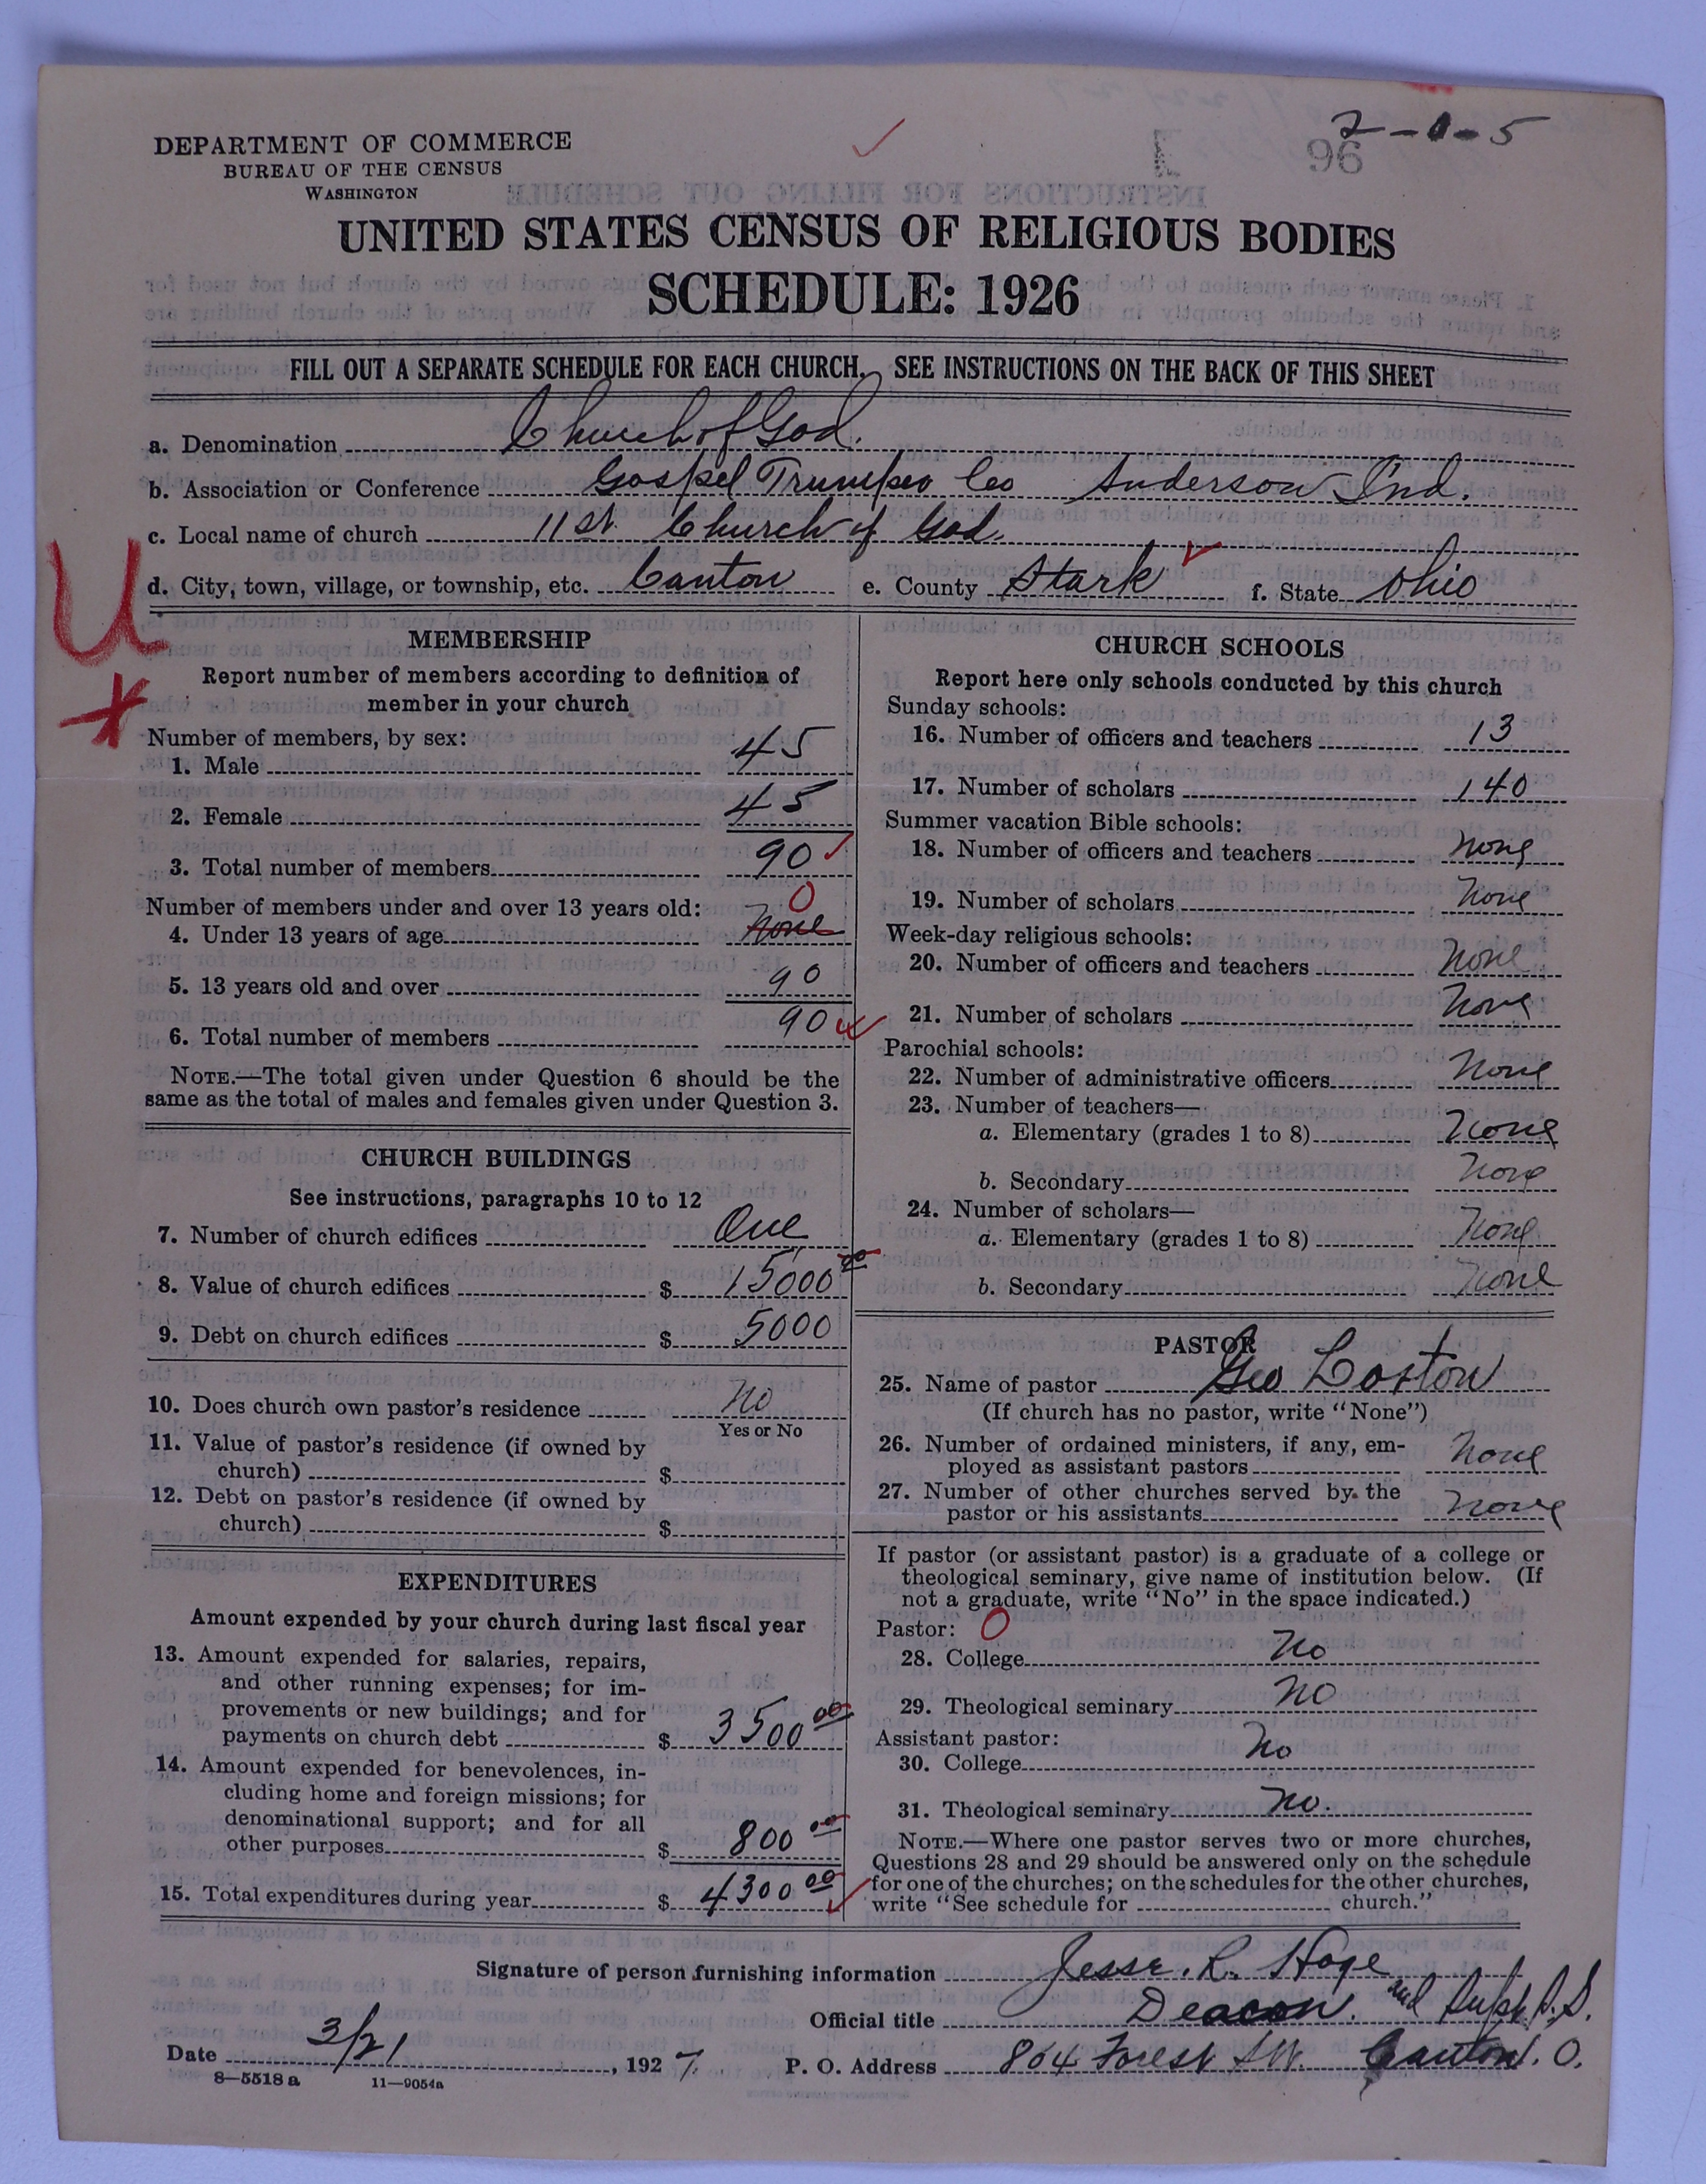 2-0-5
96
DEPARTMENT OF COMMERCE
BUREAU OF THE CENSUS
WASHINGTON
UNITED STATES CENSUS OF RELIGIOUS BODIES
SCHEDULE: 1926
FILL OUT A SEPARATE SCHEDULE FOR EACH CHURCH. SEE INSTRUCTIONS ON THE BACK OF THIS SHEET
a. Denomination Church of God.
b. Association or Conference Gospel Co Anderson Ind.
c. Local name of church 11st Church of God.
d. City, town, village, or township, etc. Canton e. County Stark f. State Ohio
U
MEMBERSHIP
Report number of members according to definition of
member in your church
Number of members, by sex:
1. Male 45
2. Female 45
3. Total number of members 90
Number of members under and over 13 years old: 0
4. Under 13 years of age None
5. 13 years old and over 90
6. Total number of members 90
NOTE.—The total given under Question 6 should be the
same as the total of males and females given under Question 3.
CHURCH BUILDINGS
See instructions, paragraphs 10 to 12
7. Number of church edifices One
8. Value of church edifices $ 15000 00
9. Debt on church edifices $ 5000
10. Does church own pastor's residence No
Yes or No
11. Value of pastor's residence (if owned by
church) $
12. Debt on pastor's residence (if owned by
church) $
EXPENDITURES
Amount expended by your church during last fiscal year
13. Amount expended for salaries, repairs,
and other running expenses; for im-
provements or new buildings; and for
payments on church debt $ 3500 00
14. Amount expended for benevolences, in-
cluding home and foreign missions; for
denominational support; and for all
other purposes $ 800 00
15. Total expenditures during year $ 4300 00
CHURCH SCHOOLS
Report here only schools conducted by this church
Sunday schools:
16. Number of officers and teachers 13
17. Number of scholars 140
Summer vacation Bible schools:
18. Number of officers and teachers None
19. Number of scholars None
Week-day religious schools:
20. Number of officers and teachers None
21. Number of scholars None
Parochial schools:
22. Number of administrative officers None
23. Number of teachers—
a. Elementary (grades 1 to 8) None
b. Secondary None
24. Number of scholars—
a. Elementary (grades 1 to 8) None
b. Secondary None
PASTOR
25. Name of pastor Geo
(If church has no pastor, write "None")
26. Number of ordained ministers, if any, em-
ployed as assistant pastors None
27. Number of other churches served by the
pastor or his assistants None
If pastor (or assistant pastor) is a graduate of a college or
theological seminary, give name of institution below. (If
not a graduate, write "No" in the space indicated.)
Pastor: 0
28. College No
29. Theological seminary No
Assistant pastor:
30. College No
31. Theological seminary No.
NOTE.—Where one pastor serves two or more churches,
Questions 28 and 29 should be answered only on the schedule
for one of the churches; on the schedules for the other churches,
write "See schedule for church."
Signature of person furnishing information Jesse. R. Hoge
Official title Deacon. and Supt S.S.
Date 3/21, 1927 P. O. Address 804 Forest SW. Canton. O.
8—5518a 11—9054a